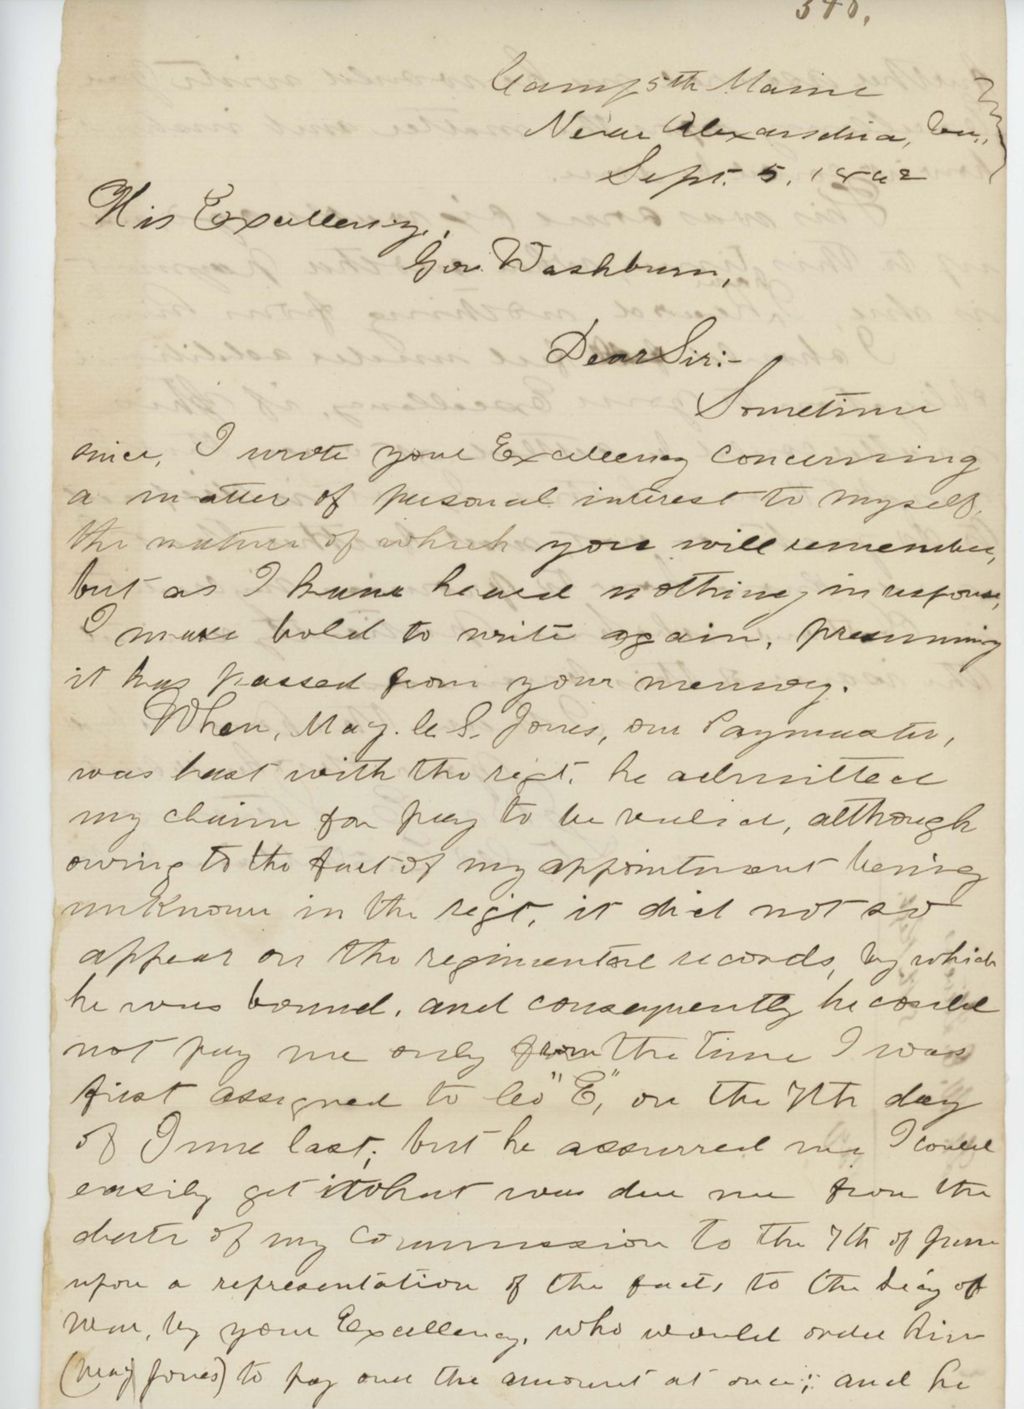 Camp 5th Maine
Near Alexandria, Va.,
Sept. 5, 1862
His Excellency,
Gov. Washburn,
Dear Sir:-
Sometime
since, I wrote your Excellency concerning
a matter of personal interest to myself,
the nature of which you will remember,
but as I have heard nothing in response,
I make bold to write again, presuming
it has passed from your memory.
When, Maj. C. S. Jones, our Paymaster,
was last with the regt. he admitted
my claim for pay to be valid, although
owing to the fact of my appointment being
unknown in the regt, it did not so
appear on the regimental records, by which
he was bound, and consequently he could
not pay me only from the time I was
first assigned to Co "E", on the 7th day
of June last; but he assurred me I could
easily get what was due me from the
date of my commission to the 7th of June
upon a representation of the facts to the Sec'y of
War, by your Excellency, who would order him
(Maj Jones) to pay over the amount at once; and he